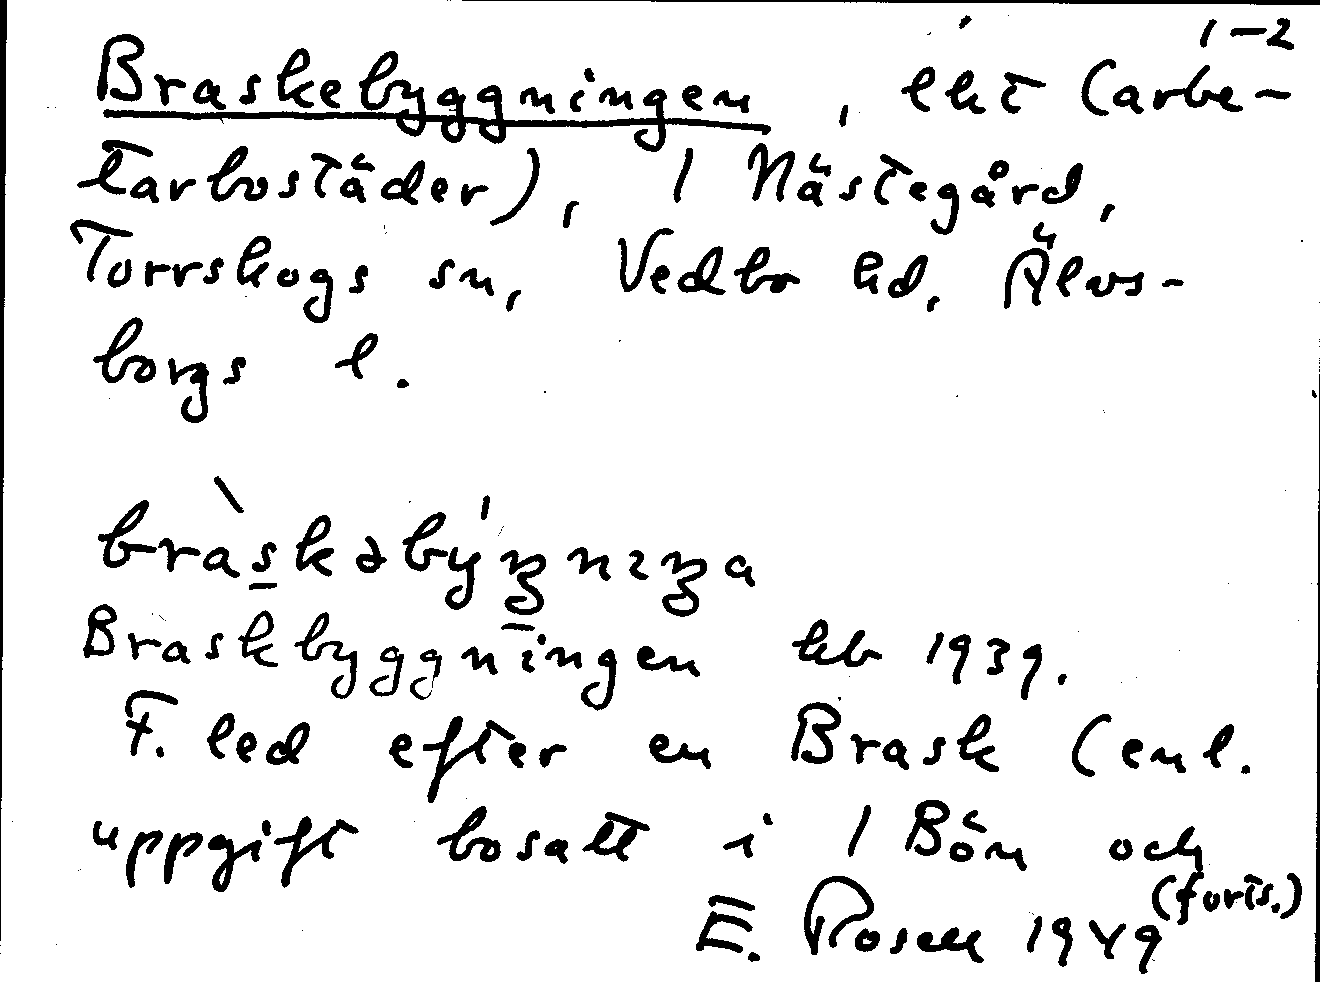 1-2
Braskebyggningen, lht (arbe-
tarbostäder), 1 Nästegård,
Torrskogs sn, Vedbo hd, Älvs-
borgs l.
bràskəbýŋnıŋa
Braskbyggningen hb 1939.
F. led efter en Brask (enl.
uppgift bosatt i 1 Bön och
(forts.)
E. Rosell 1949